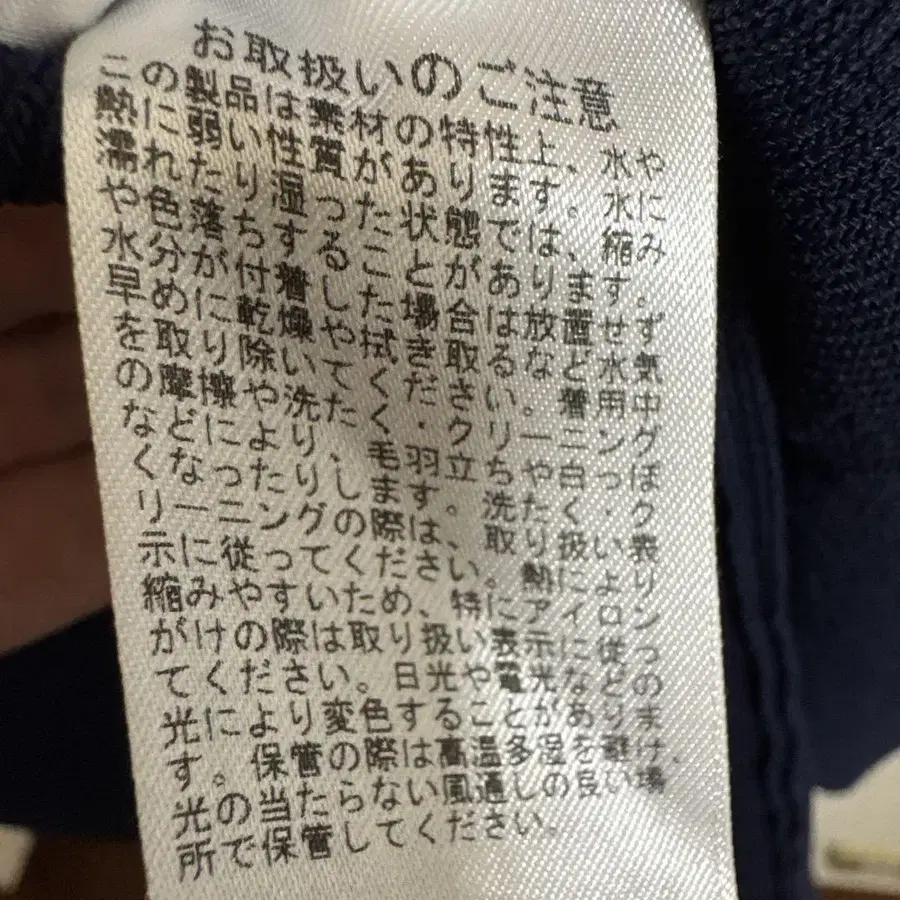 お取扱いのご注意
この製品は素材の特性上、水や
熱に弱い性質があります。水に
濡れたり湿った状態では、縮み
や色落ちすることがあります。
水分が付着した場合は放置せず
早めに乾燥や拭き取るなど水気
を取り除いてください。着用中
の摩擦や洗たく・クリーニング
などにより、毛羽立ちや白っぽ
くなったりします。洗たく・ク
リーニングの際は、取り扱い表
示に従ってください。熱により
縮みやすいため、特にアイロン
がけの際は取り扱い表示に従っ
てください。日光や電光などの
光により変色することがありま
す。保管の際は高温多湿を避け、
光の当たらない風通しの良い場
所で保管してください。